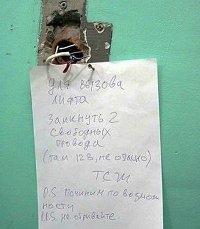 для вызова
лифта
замкнуть 2
свободных
провода
(там 12В, не опасно)
ТСЖ
P.S починим по возмож
ности
P.S не обрывайте